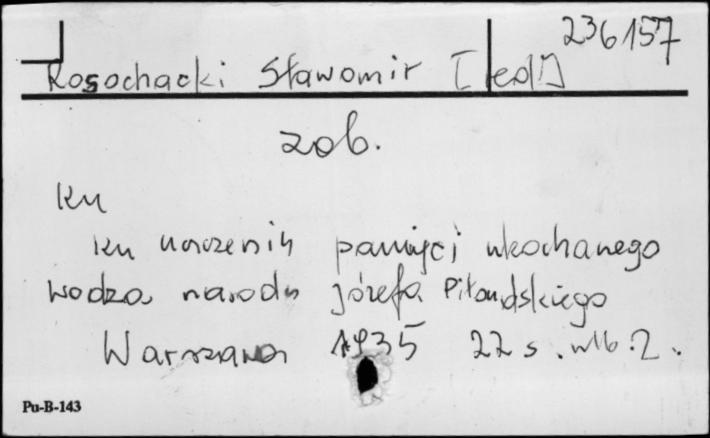 236157
Rosochacki Sławomir [red.]
zob.
Ku
Ku uczczeniu pamięci ukochanego
wodza narodu Józefa Piłsudskiego
Warszawa 1935 22 s. nlb. 2.
Pu-B-143